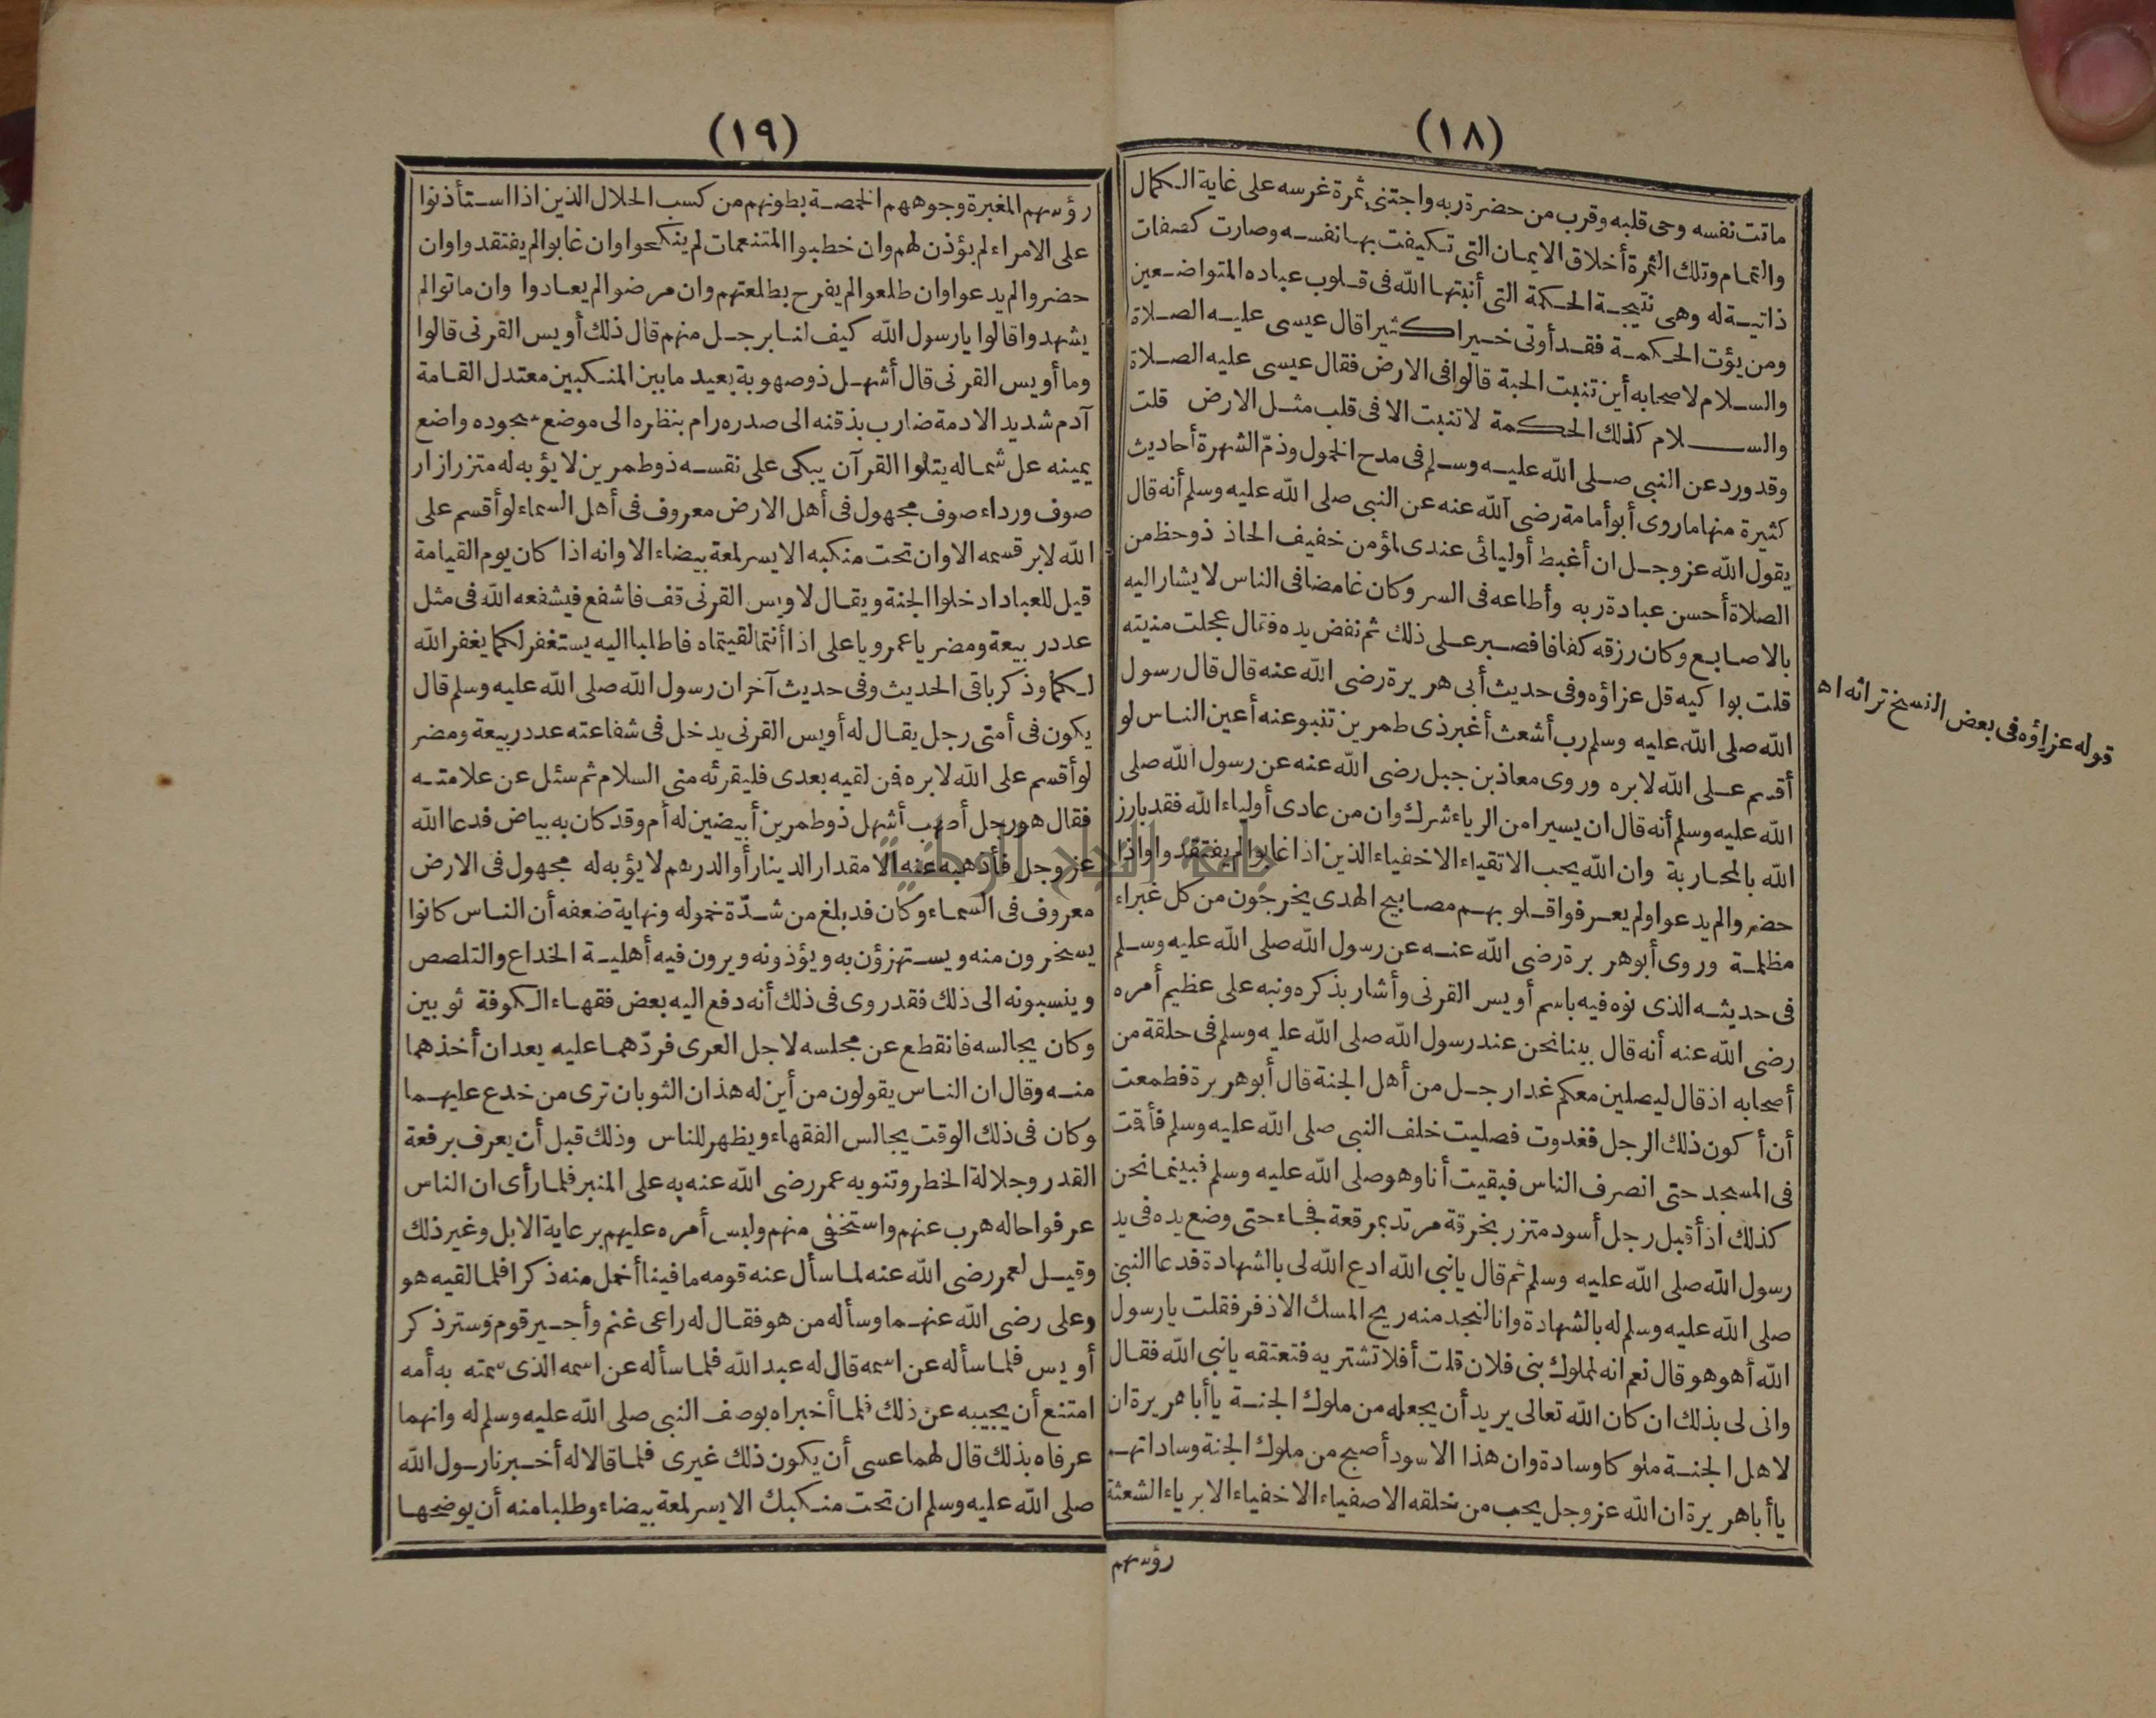 (١٨)
ماتت نفسه وحى قلبه وقرب من حضرة ربه واجتنى ثمرة غرسه على غاية الكمال
والتمام وتلك الثمرة أخلاق الايمان التى تكيفت بها نفسه وصارت كصفات
ذاتية له وهى نتيجة الحكمة التى أنبتها الله فى قلوب عباده المتواضعين
ومن يؤت الحكمة فقد أوتى خيرا كثيرا قال عيسى عليه الصلاة
والسلام لاصحابه أين تنبت الحبة قالوا فى الارض فقال عيسى عليه الصلاة
والسلام كذلك الحكمة لا تنبت الا فى قلب مثل الارض قلت
وقد ورد عن النبى صلى الله عليه وسلم فى مدح الخمول وذمّ الشهرة أحاديث
كثيرة منها ما روى أبو أمامة رضى الله عنه عن النبى صلى الله عليه وسلم أنه قال
يقول الله عز وجل ان أغبط أوليائى عندى لمؤمن خفيف الحاذ ذو حظ من
الصلاة أحسن عبادة ربه وأطاعه فى السر وكان غامضا فى الناس لا يشار اليه
بالاصابع وكان رزقه كفافا فصبر على ذلك ثم نفض يده فقال عجلت منيته
قلت بواكيه قل عزاؤه وفى حديث أبى هريرة رضى الله عنه قال قال رسول
الله صلى الله عليه وسلم رب أشعث أغبر ذى طمرين تنبو عنه أعين الناس لو
أقسم على الله لابره وروى معاذ بن جبل رضى الله عنه عن رسول الله صلى
الله عليه وسلم أنه قال ان يسيرا من الرياء شرك وان من عادى أولياء الله فقد بارز
الله بالمحاربة وان الله يحب الاتقياء الاخفياء الذين اذا غابوا لم يفتقدوا واذا
حضروا لم يدعوا ولم يعرفوا قلوبهم مصابيح الهدى يخرجون من كل غبراء
مظلمة وروى أبو هريرة رضى الله عنه عن رسول الله صلى الله عليه وسلم
فى حديثه الذى نوه فيه باسم أويس القرنى وأشار بذكره ونبه على عظيم أمره
رضى الله عنه أنه قال بينا نحن عند رسول الله صلى الله عليه وسلم فى حلقة من
أصحابه اذ قال ليصلين معكم غدا رجل من أهل الجنة قال أبو هريرة فطمعت
أن أكون ذلك الرجل فغدوت فصليت خلف النبى صلى الله عليه وسلم فأقت
فى المسجد حتى انصرف الناس فبقيت أنا وهو صلى الله عليه وسلم فبينما نحن
كذلك اذ أقبل رجل أسود متزر بخرقة مرتد بمرقعة فجاء حتى وضع يده فى يد
رسول الله صلى الله عليه وسلم ثم قال يا نبى الله ادع الله لى بالشهادة فدعا النبى
صلى الله عليه وسلم له بالشهادة وانا لنجد منه ريح المسك الاذفر فقلت يا رسول
الله أهو هو قال نعم انه لمملوك بنى فلان قلت أفلا تشتريه فتعتقه يا نبى الله فقال
وانى لى بذلك ان كان الله تعالى يريد أن يجعله من ملوك الجنة يا أبا هريرة ان
لاهل الجنة ملوكا وسادة وان هذا الاسود أصبح من ملوك الجنة وساداتهم
يا أبا هريرة ان الله عز وجل يحب من خلقه الاصفياء الاخفياء الابرياء الشعثة
رؤسهم
قوله عزاؤه فى بعض النسخ تراثه اه
(١٩)
رؤسهم المغبرة وجوههم الخمصة بطونهم من كسب الحلال الذين اذا استأذنوا
على الامراء لم يؤذن لهم وان خطبوا المتنعمات لم ينكحوا وان غابوا لم يفتقدوا وان
حضروا لم يدعوا وان طلعوا لم يفرح بطلعتهم وان مرضوا لم يعادوا وان ماتوا لم
يشهدوا قالوا يا رسول الله كيف لنا برجل منهم قال ذلك أويس القرنى قالوا
وما أويس القرنى قال أشهل ذو صهوبة بعيد ما بين المنكبين معتدل القامة
آدم شديد الادمة ضارب بذقنه الى صدره رام بنظره الى موضع سجوده واضع
يمينه عل شماله يتلوا القرآن يبكى على نفسه ذو طمرين لا يؤبه له متزر ازار
صوف ورداء صوف مجهول فى أهل الارض معروف فى أهل السماء لو أقسم على
الله لابر قسمه الا وان تحت منكبه الايسر لمعة بيضاء الا وانه اذا كان يوم القيامة
قيل للعباد ادخلوا الجنة ويقال لاويس القرنى قف فاشفع فيشفعه الله فى مثل
عدد ربيعة ومضر يا عمر ويا على اذا أنتما لقيتماه فاطلبا اليه يستغفر لكما يغفر الله
لكما وذكر باقى الحديث وفى حديث آخر ان رسول الله صلى الله عليه وسلم قال
يكون فى أمتى رجل يقال له أويس القرنى يدخل فى شفاعته عدد ربيعة ومضر
لو أقسم على الله لابره فمن لقيه بعدى فليقرئه منى السلام ثم سئل عن علامته
فقال هو رجل أصهب أشهل ذو طمرين أبيضين له أم وقد كان به بياض فدعا الله
عز وجل فأذهبه عنه الا مقدار الدينار أو الدرهم لا يؤبه له مجهول فى الارض
معروف فى السماء وكان قد بلغ من شدّة خموله ونهاية ضعفه أن الناس كانوا
يسخرون منه ويستهزؤن به ويؤذونه ويرون فيه أهلية الخداع والتلصص
وينسبونه الى ذلك فقد روى فى ذلك أنه دفع اليه بعض فقهاء الكوفة ثوبين
وكان يجالسه فانقطع عن مجلسه لاجل العرى فردّهما عليه بعد ان أخذهما
منه وقال ان الناس يقولون من أين له هذان الثوبان ترى من خدع عليهما
وكان فى ذلك الوقت يجالس الفقهاء ويظهر للناس وذلك قبل أن يعرف برفعة
القدر وجلالة الخطر وتنويه عمر رضى الله عنه به على المنبر فلما رأى ان الناس
عرفوا حاله هرب عنهم واستخفى منهم ولبس أمره عليهم برعاية الابل وغير ذلك
وقيل لعمر رضى الله عنه لما سأل عنه قومه ما فينا أخمل منه ذكرا فلما لقيه هو
وعلى رضى الله عنهما وسأله من هو فقال له راعى غنم وأجير قوم وستر ذكر
أويس فلما سأله عن اسمه قال له عبد الله فلما سأله عن اسمه الذى سمته به أمه
امتنع أن يجيبه عن ذلك فلما أخبراه بوصف النبى صلى الله عليه وسلم له وانهما
عرفاه بذلك قال لهما عسى أن يكون ذلك غيرى فلما قالا له أخبرنا رسول الله
صلى الله عليه وسلم ان تحت منكبك الايسر لمعة بيضاء وطلبا منه أن يوضحها
جامعة النجاح الوطنية